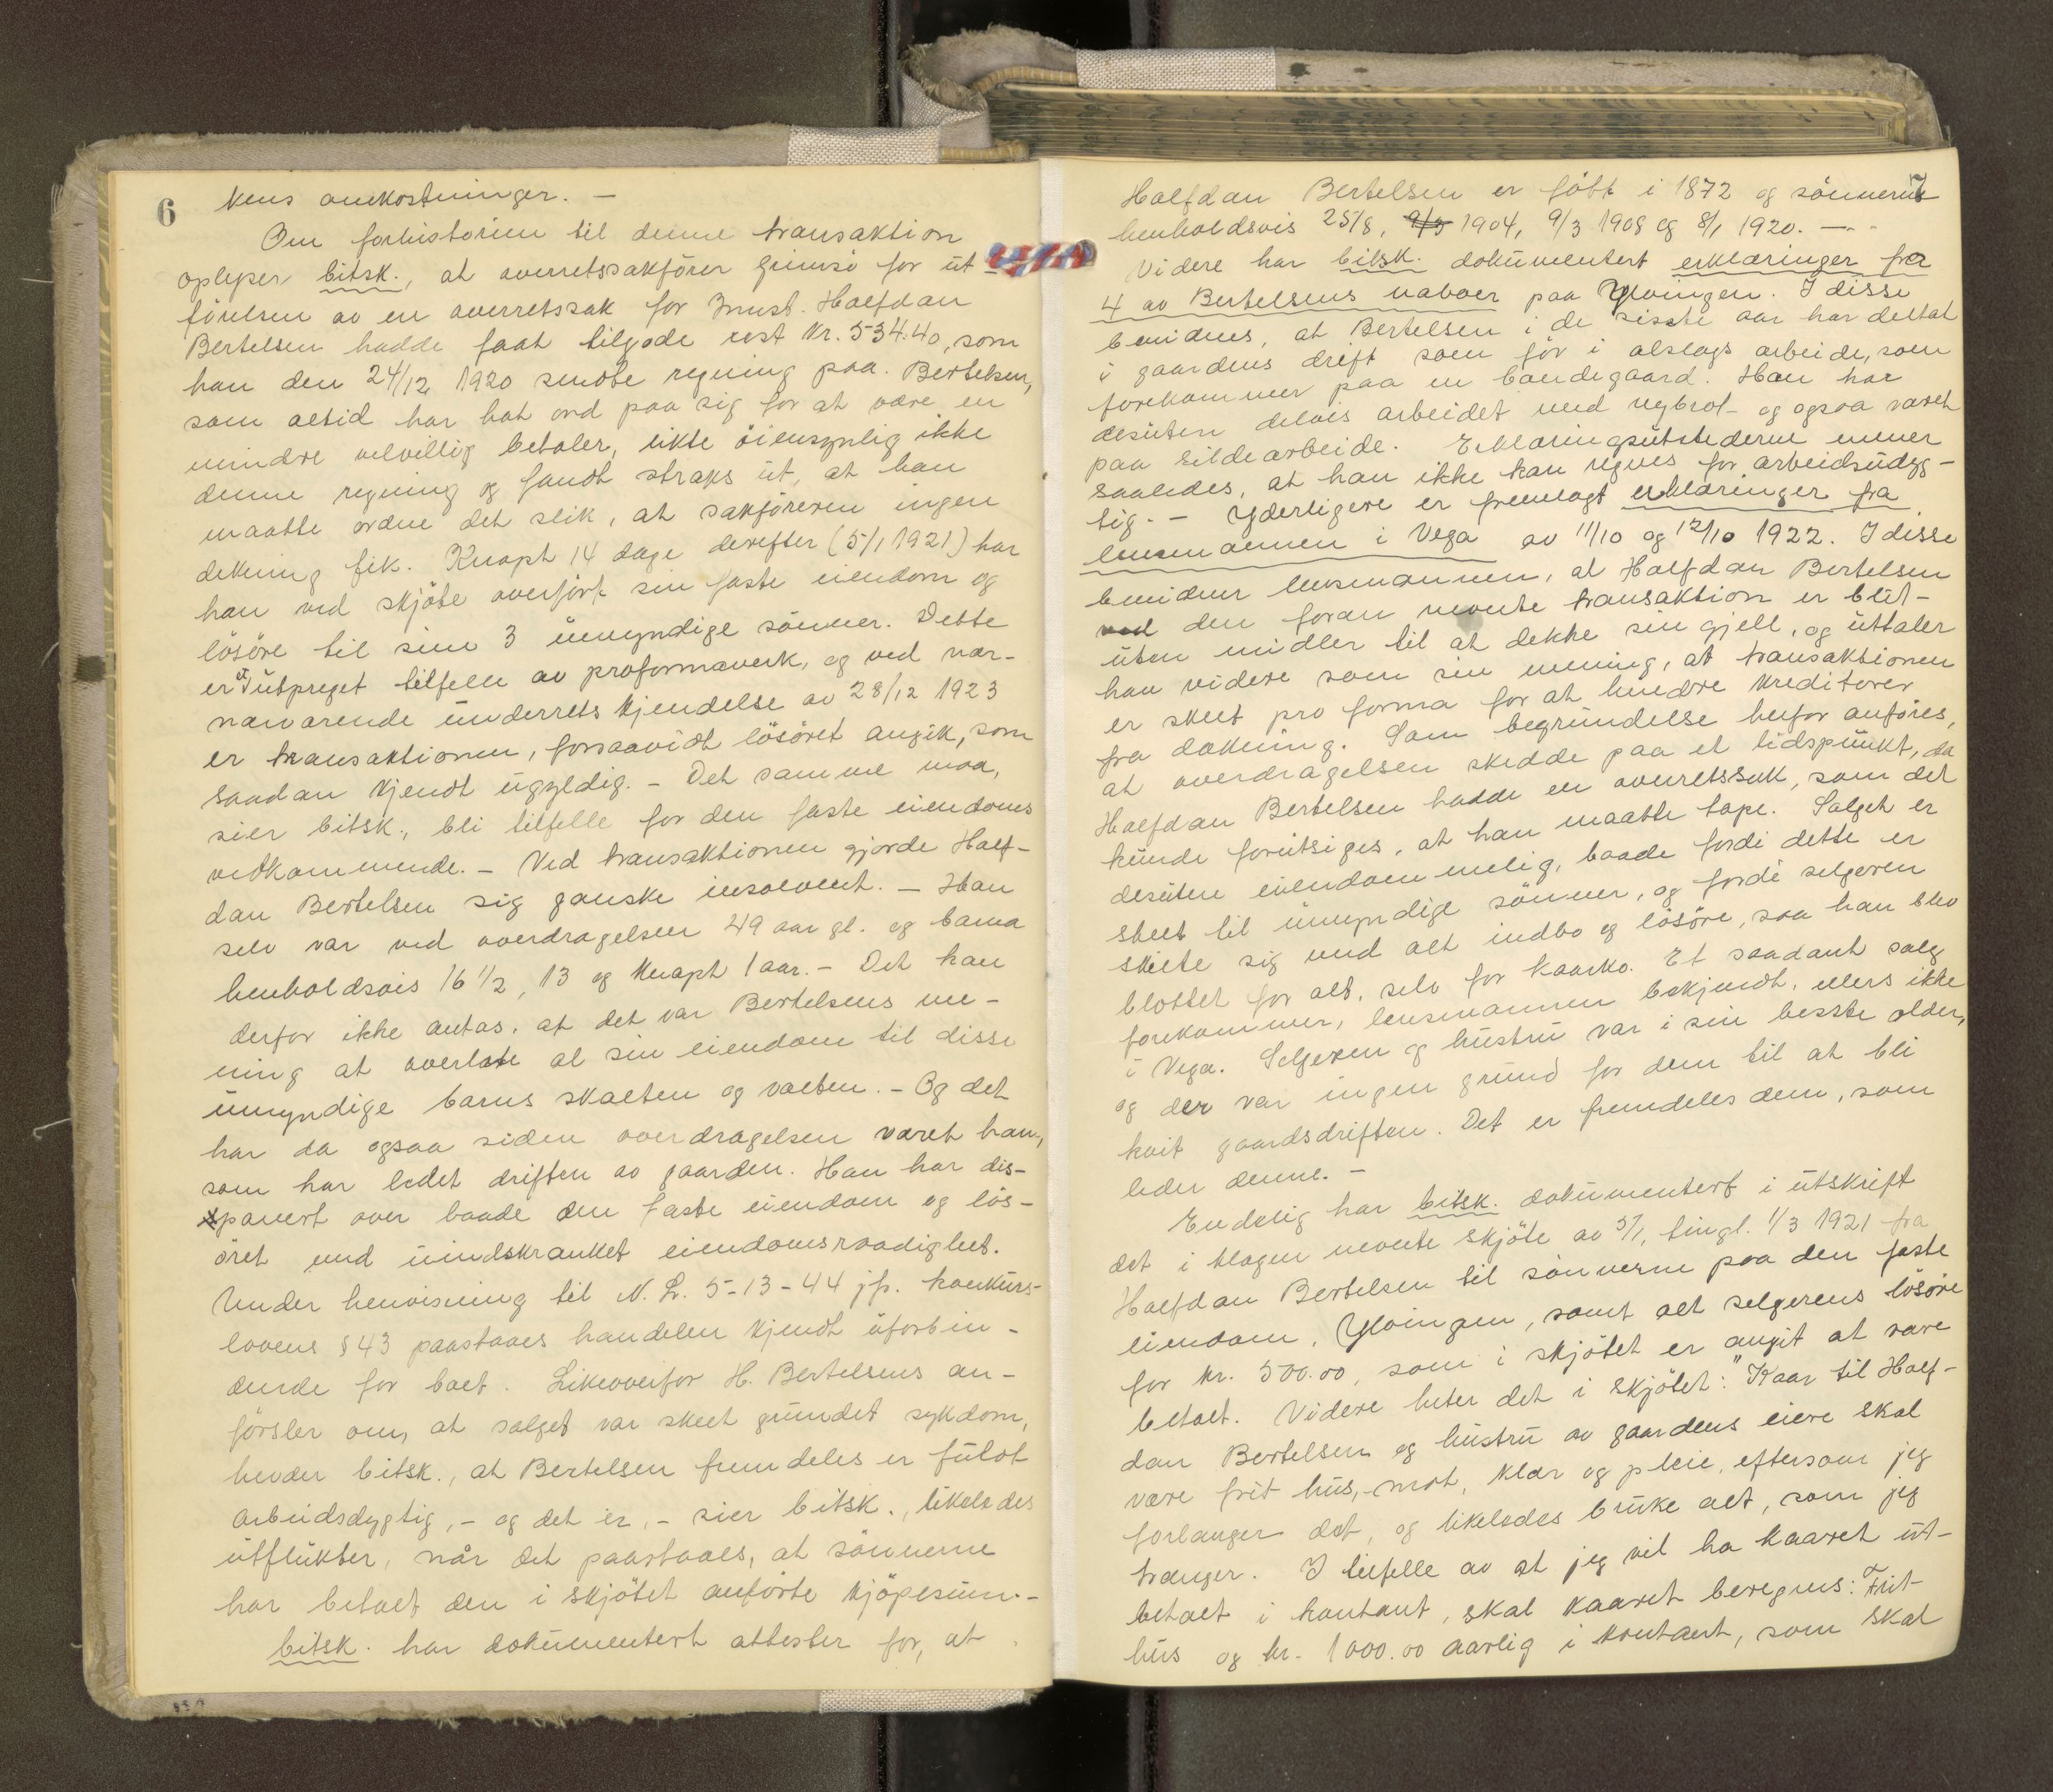 6
kens omkostninger. —
Om forhistorien til denne transaktion
oplyser bitsk., at overretssakförer Grimsö for ut-
förelsen av en overretssak for Innst. Halfdan
Bertelsen hadde faat tilgode rest kr. 534.40, som
han den 24/12 1920 sendte regning paa. Bertelsen,
som altid har hat ord paa sig for at være en
mindre velvillig betaler, likte öiensynlig ikke
denne regning og fandt straks ut, at han
maatte ordne det slik, at sakföreren ingen
dekning fik. Knapt 14 dage derefter (5/1 1921) har
han ved skjöte overfört sin faste eiendom og
lösöre til sine 3 umyndige sönner. Dette
er et utpreget tilfelle av proformaverk, og ved nær-
nærværende underrets kjendelse av 28/12 1923
er transaktionen, forsaavidt lösöret angik, som
saadan kjendt ugyldig. - Det samme maa,
sier bitsk., bli tilfelle for den faste eiendoms
vedkommende. - Ved transaktionen gjorde Half-
dan Bertelsen sig ganske insolvent. - Han
selv var ved overdragelsen 49 aar gl. og barna
henholdsvis 16 1/2, 13 og knapt 1 aar. - Det kan
derfor ikke antas, at det var Bertelsens me-
ning at overlate al sin eiendom til disse
umyndige barns skalten og valten. - Og det
har da ogsaa siden overdragelsen været han,
som har ledet driften av gaarden. Han har dis-
ponert over baade den faste eiendom og lös-
öret med uindskrænket eiendomsraadighet.
Under henvisning til N. L. 5-13-44 jfr. konkurs-
lovens § 43 paastaaes handelen kjendt uforbin-
dende for boet. Likeoverfor H. Bertelsens an-
försler om, at salget var skeet grundet sykdom,
hevder bitsk., at Bertelsen fremdeles er fuldt
arbeidsdygtig, - og det er, - sier bitsk., likeledes
utflukter, når det paastaaes, at sönnerne
har betalt den i skjötet anförte kjöpesum. -
bitsk. har dokumentert attester for, at
7
Halfdan Bertelsen er födt i 1872 og sönnerne
henholdsvis 25/8, 9/3 1904, 9/3 1908 og 8/1 1920. —
Videre har bitsk. dokumentert erklæringer fra
4 av Bertelsens naboer paa Ylvingen. I disse
bevidnes, at Bertelsen i de sisste aar har deltat
i gaardens drift som för i alslags arbeide, som
forekommer paa en bondegaard. Han har
desuten delvis arbeidet med nybrot- og ogsaa været
paa sildearbeide. Erklæringsutstederne mener
saaledes, at han ikke kan regnes for arbeidsudyg-
tig. - Yderligere er fremlagt erklæringer fra
lensmannen i Vega av 11/10 og 12/10 1922. I disse
bevidner lensmannen, at Halfdan Bertelsen
ved den foran nevnte transaktion er blit-
uten midler til at dekke sin gjell, og uttaler
han videre som sin mening, at transaktionen
er skeet pro forma for at hindre kreditorer
fra dækning. Som begrundelse herfor anföres,
at overdragelsen skedde paa et tidspunkt, da
Halfdan Bertelsen hadde en overretssak, som det
kunde forutsiges, at han maatte tape. Salget er
desuten eiendommelig, baade fordi dette er
skeet til umyndige sönner, og fordi selgeren
skilte sig med alt indbo og lösöre, saa han blev
blottet for alt, selv for kaarko. Et saadant salg
forekommer, lensmannen bekjendt, ellers ikke
i Vega. Selgeren og hustru var i sin besste alder,
og der var ingen grund for dem til at bli
kvit gaardsdriften. Det er fremdeles dem, som
leder denne. -
Endelig har bitsk. dokumentert i utskrift
det i klagen nevnte skjöte av 5/1, tingl. 1/3 1921 fra
Halfdan Bertelsen til sönnerne paa den faste
eiendom, Ylvingen, samt alt selgerens lösöre
for kr. 500.00, som i skjötet er angit at være
betalt. Videre heter det i skjötet: "Kaar til Half-
dan Bertelsen og hustru av gaardens eiere skal
være frit hus, mat, klær og pleie, eftersom jeg
forlanger det, og likeledes bruke alt, som jeg
trænger. I tilfelle av at jeg vil ha kaaret ut-
betalt i kontant, skal kaaret beregnes: Frit
hus og kr. 1000.00 aarlig i kontant, som skal